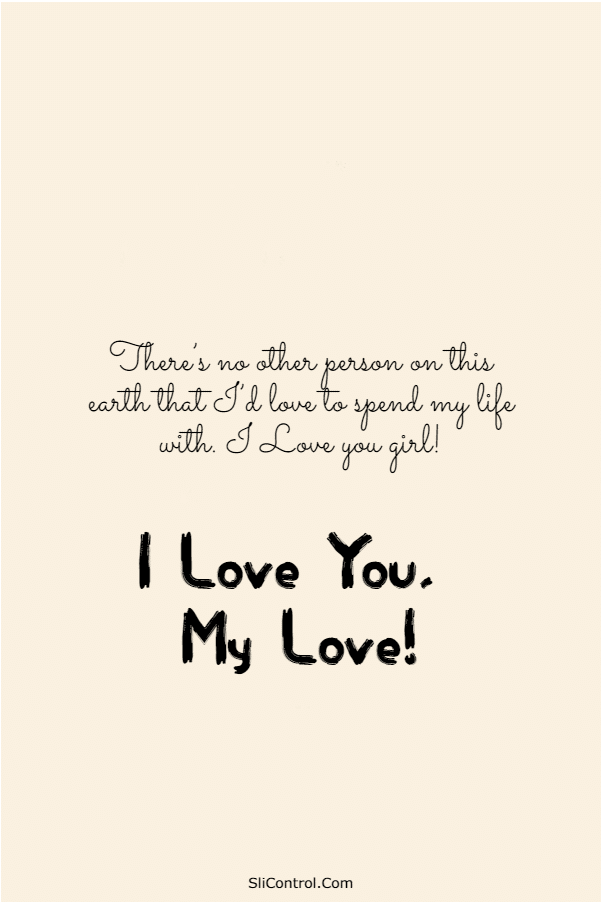 There's no other person on this
earth that I'd love to spend my life
with. I Love you girl!
I Love You,
My Love!
SliControl.Com